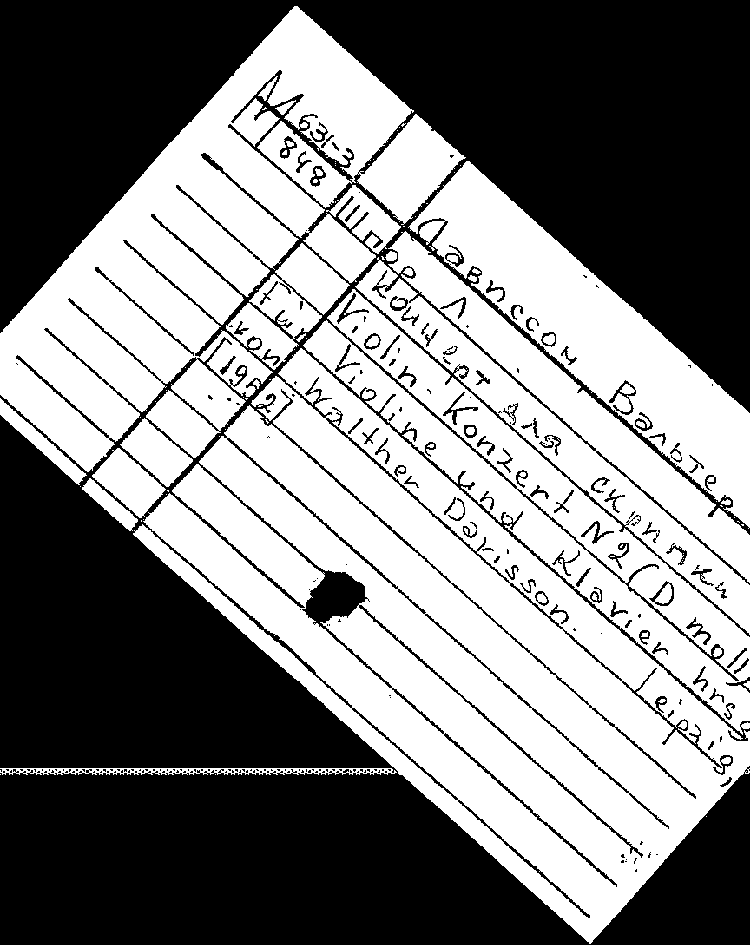 М 631-3
848
Дависсон, Вальтер
Шпор Л.
Концерт для скрипки
Violin-Konzert N2 (D moll)
Für Violine und Klavier hrsg
von Walther Davisson. Leipzig,
[1952]